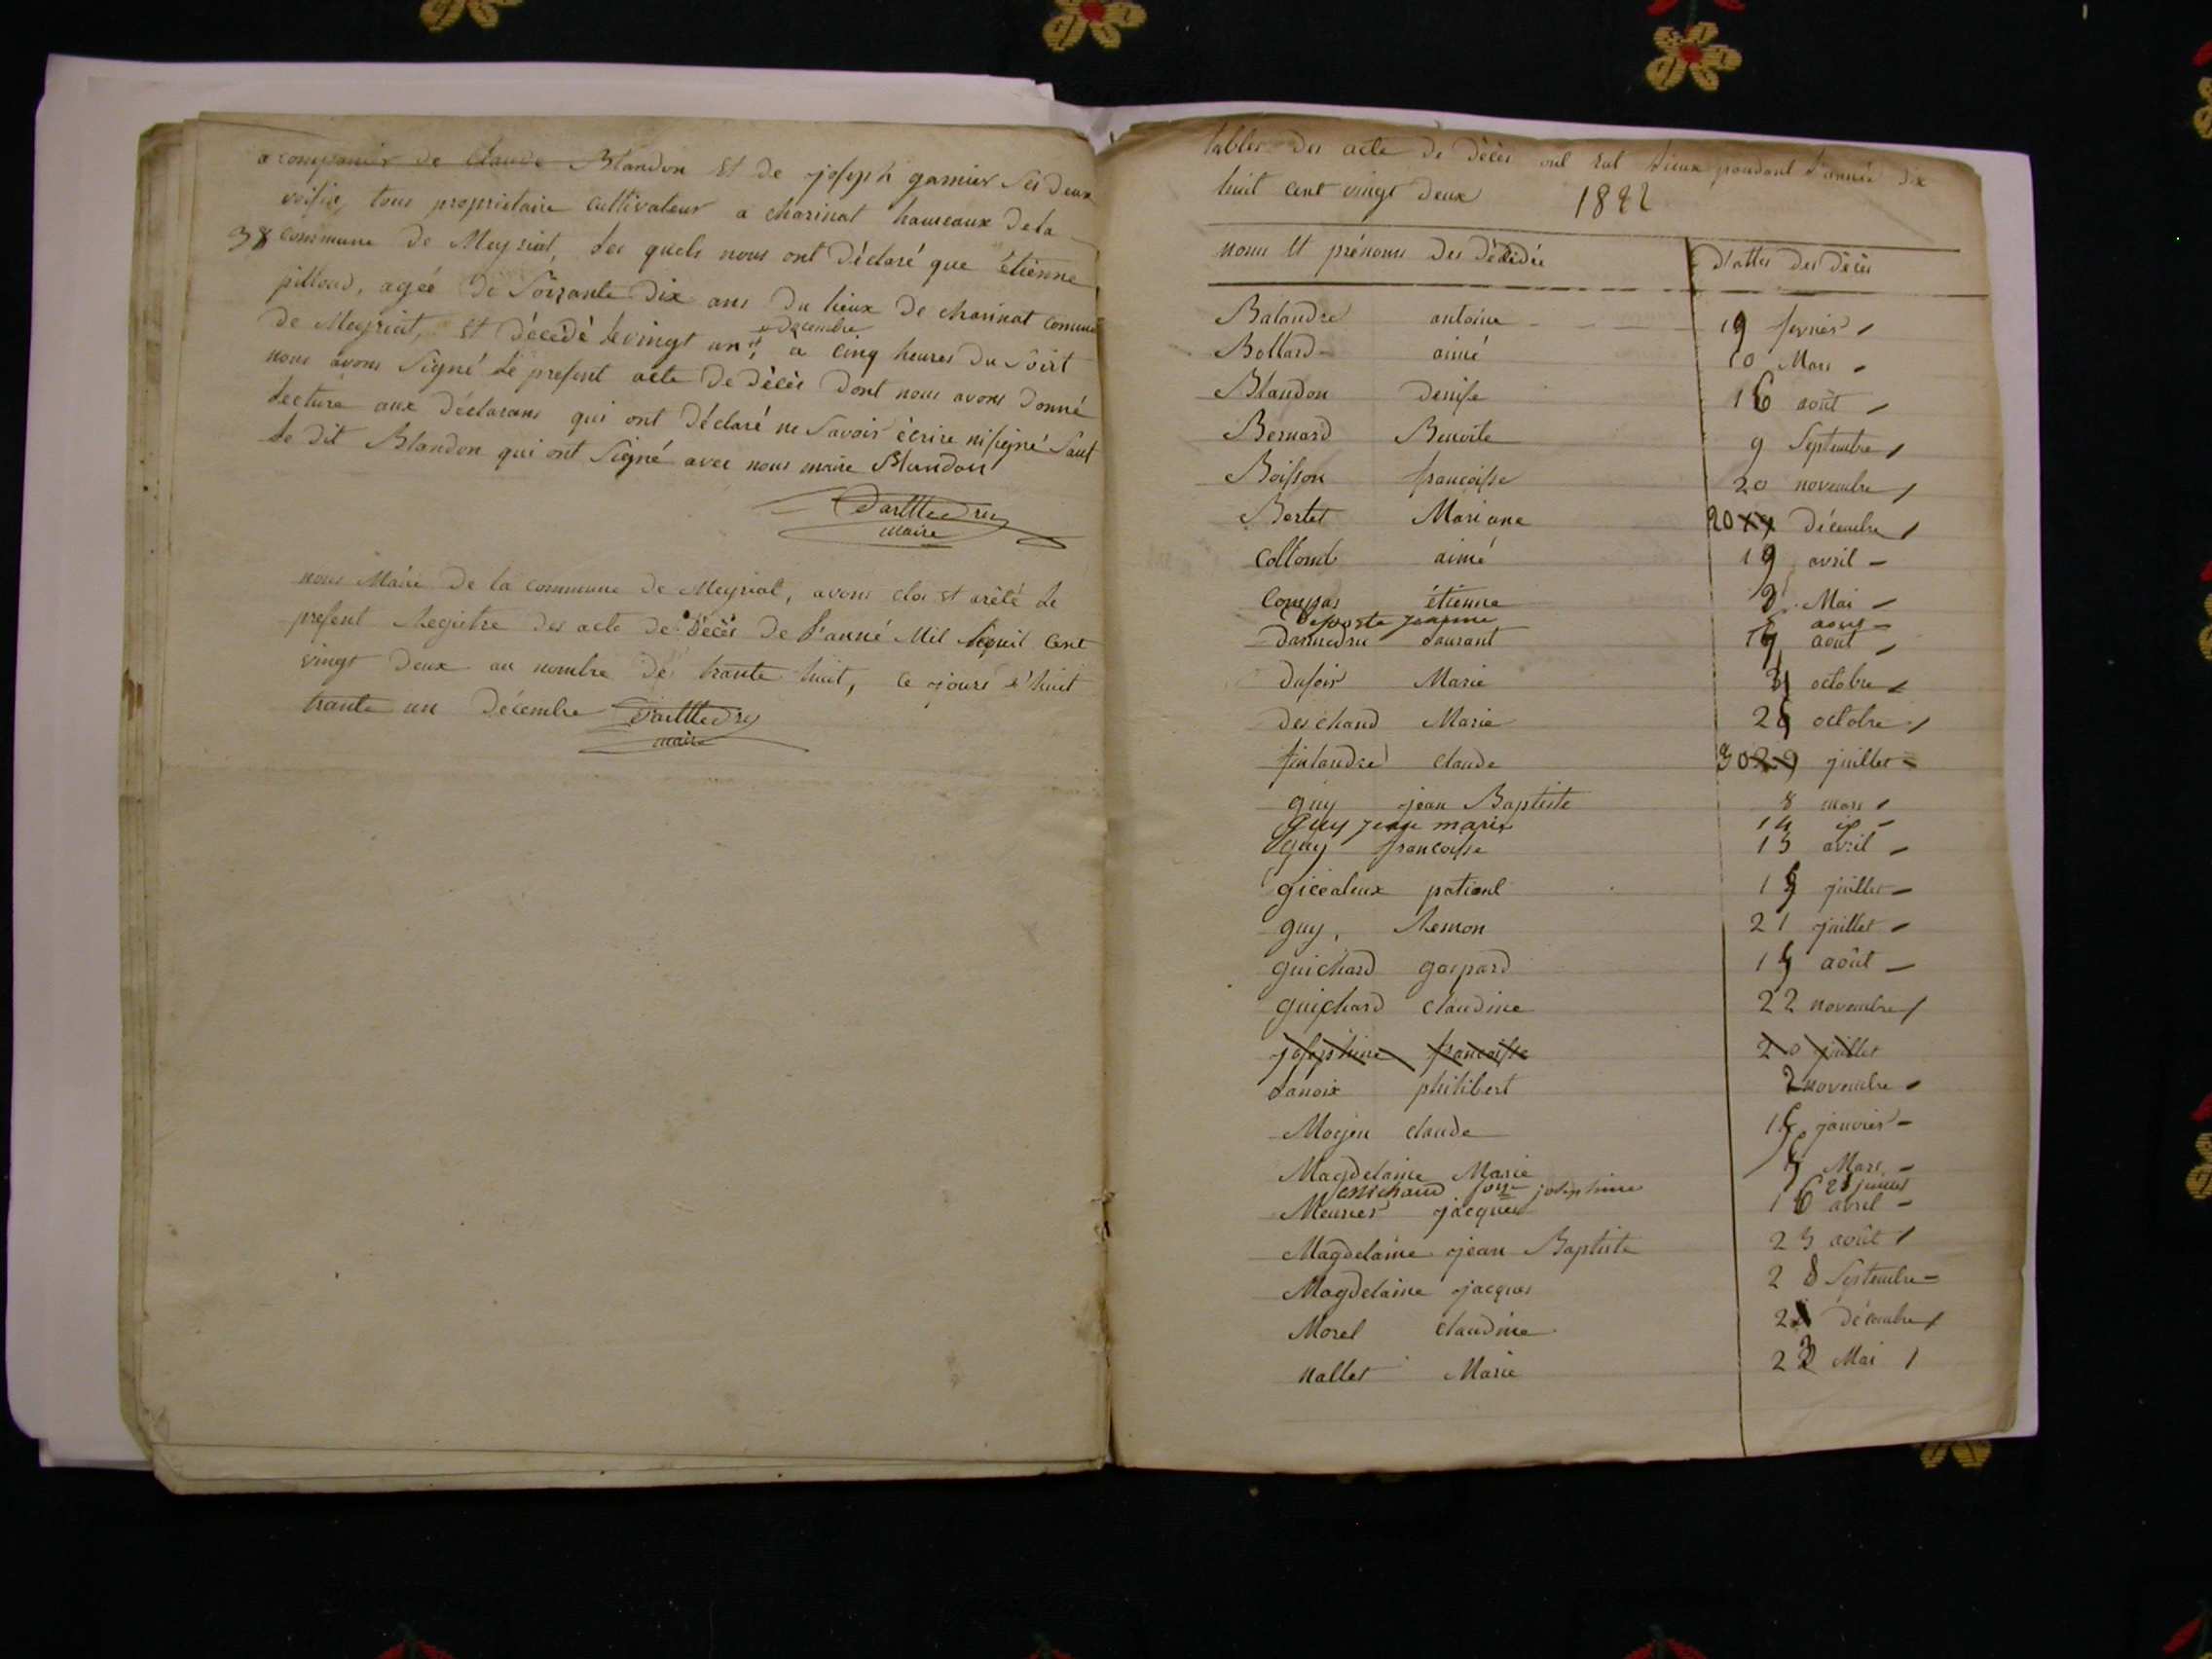 acompanier de Claude Blandon et de joseph garnier ses deux
voisin, tous proprietaire cultivateur a charinat hameaux de la
38 commune de Meyriat, les quels nous ont déclaré que étienne
pilloud, agéé de soixante dix ans du lieux de charinat commune
de Meyriat, et décédé le vingt un decembre, à cinq heures du soirt
nous avons signé le present acte de décès dont nous avons donné
lecture aux déclarans qui ont déclaré ne savoir écrire ni signé sauf
le dit Blandon qui ont signé avec nous maire Blandon
maire
nous Maire de la commune de Meyriat, avons clos et arêté le
present Registre des acte de décès de l'anné Mil huit cent
vingt deux au nombre de trante huit, ce jours d'huit
trante un Décembre
maire
tables des acte de décès ont lieux pendant l'année dix
huit cent vingt deux 1822
noms et prénoms des décédée dattes des décès
Balandre antoine 19 fevrier
Bollard aimé 10 Mars
Blandon denise 16 août
Bernard Benoite 9 Septembre
Boisson francoisse 20 novembre
Bertet Mariane 20 décembre
Collomb aimé 19 avril
Compas étienne 3 Mai
Deposte jeanne aout
Darmedru Laurant août
Dufoir Marie octobre
Deschand Marie octobre
finlandre claude 30 29 juillet
guy jean Baptiste 8 mars
guy jean marie 14
guy francoisse 13 avril
gicealeux patient juillet
guy, Remon 21 juillet
guichard gaspard août
guichard claudine 22 novembre
josephine francoisse 20 juillet
Lanoix philibert 2 novembre
Moyen claude janvier
Magdelaine Marie Mars
Michaud josephine 21 juillet
Meunier jacques 16 avril
Magdelaine jean Baptiste 23 août
Magdelaine jacques 28 Septembre
Morel claudine décembre
nallet Marie 23 Mai